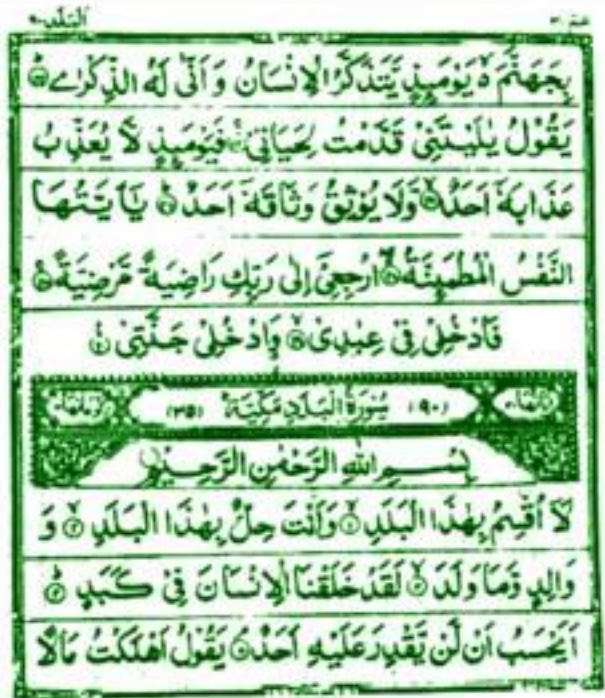 البلد ٩٠
عم ٣٠
بِجَهَنَّمَ ۙ يَوْمَئِذٍ يَّتَذَكَّرُ الْاِنْسَانُ وَ اَنّٰى لَهُ الذِّكْرٰى ۟
يَقُوْلُ يٰلَيْتَنِيْ قَدَّمْتُ لِحَيَاتِيْ ۟ فَيَوْمَئِذٍ لَّا يُعَذِّبُ
عَذَابَهٗۤ اَحَدٌ ۟ وَّلَا يُوْثِقُ وَثَاقَهٗۤ اَحَدٌ ۟ يٰۤاَيَّتُهَا
النَّفْسُ الْمُطْمَىِٕنَّةُ ۟ ارْجِعِيْۤ اِلٰى رَبِّكِ رَاضِيَةً مَّرْضِيَّةً ۟
فَادْخُلِيْ فِيْ عِبٰدِيْ ۟ وَادْخُلِيْ جَنَّتِيْ ۟
(٩٠) سُوْرَةُ الْبَلَدِ مَكِّيَّةٌ (٣٥)
بِسْمِ اللّٰهِ الرَّحْمٰنِ الرَّحِيْمِ
لَاۤ اُقْسِمُ بِهٰذَا الْبَلَدِ ۟ وَاَنْتَ حِلٌّۢ بِهٰذَا الْبَلَدِ ۟ وَ
وَالِدٍ وَّمَا وَلَدَ ۟ لَقَدْ خَلَقْنَا الْاِنْسَانَ فِيْ كَبَدٍ ۟
اَيَحْسَبُ اَنْ لَّنْ يَّقْدِرَ عَلَيْهِ اَحَدٌ ۟ يَقُوْلُ اَهْلَكْتُ مَالًا